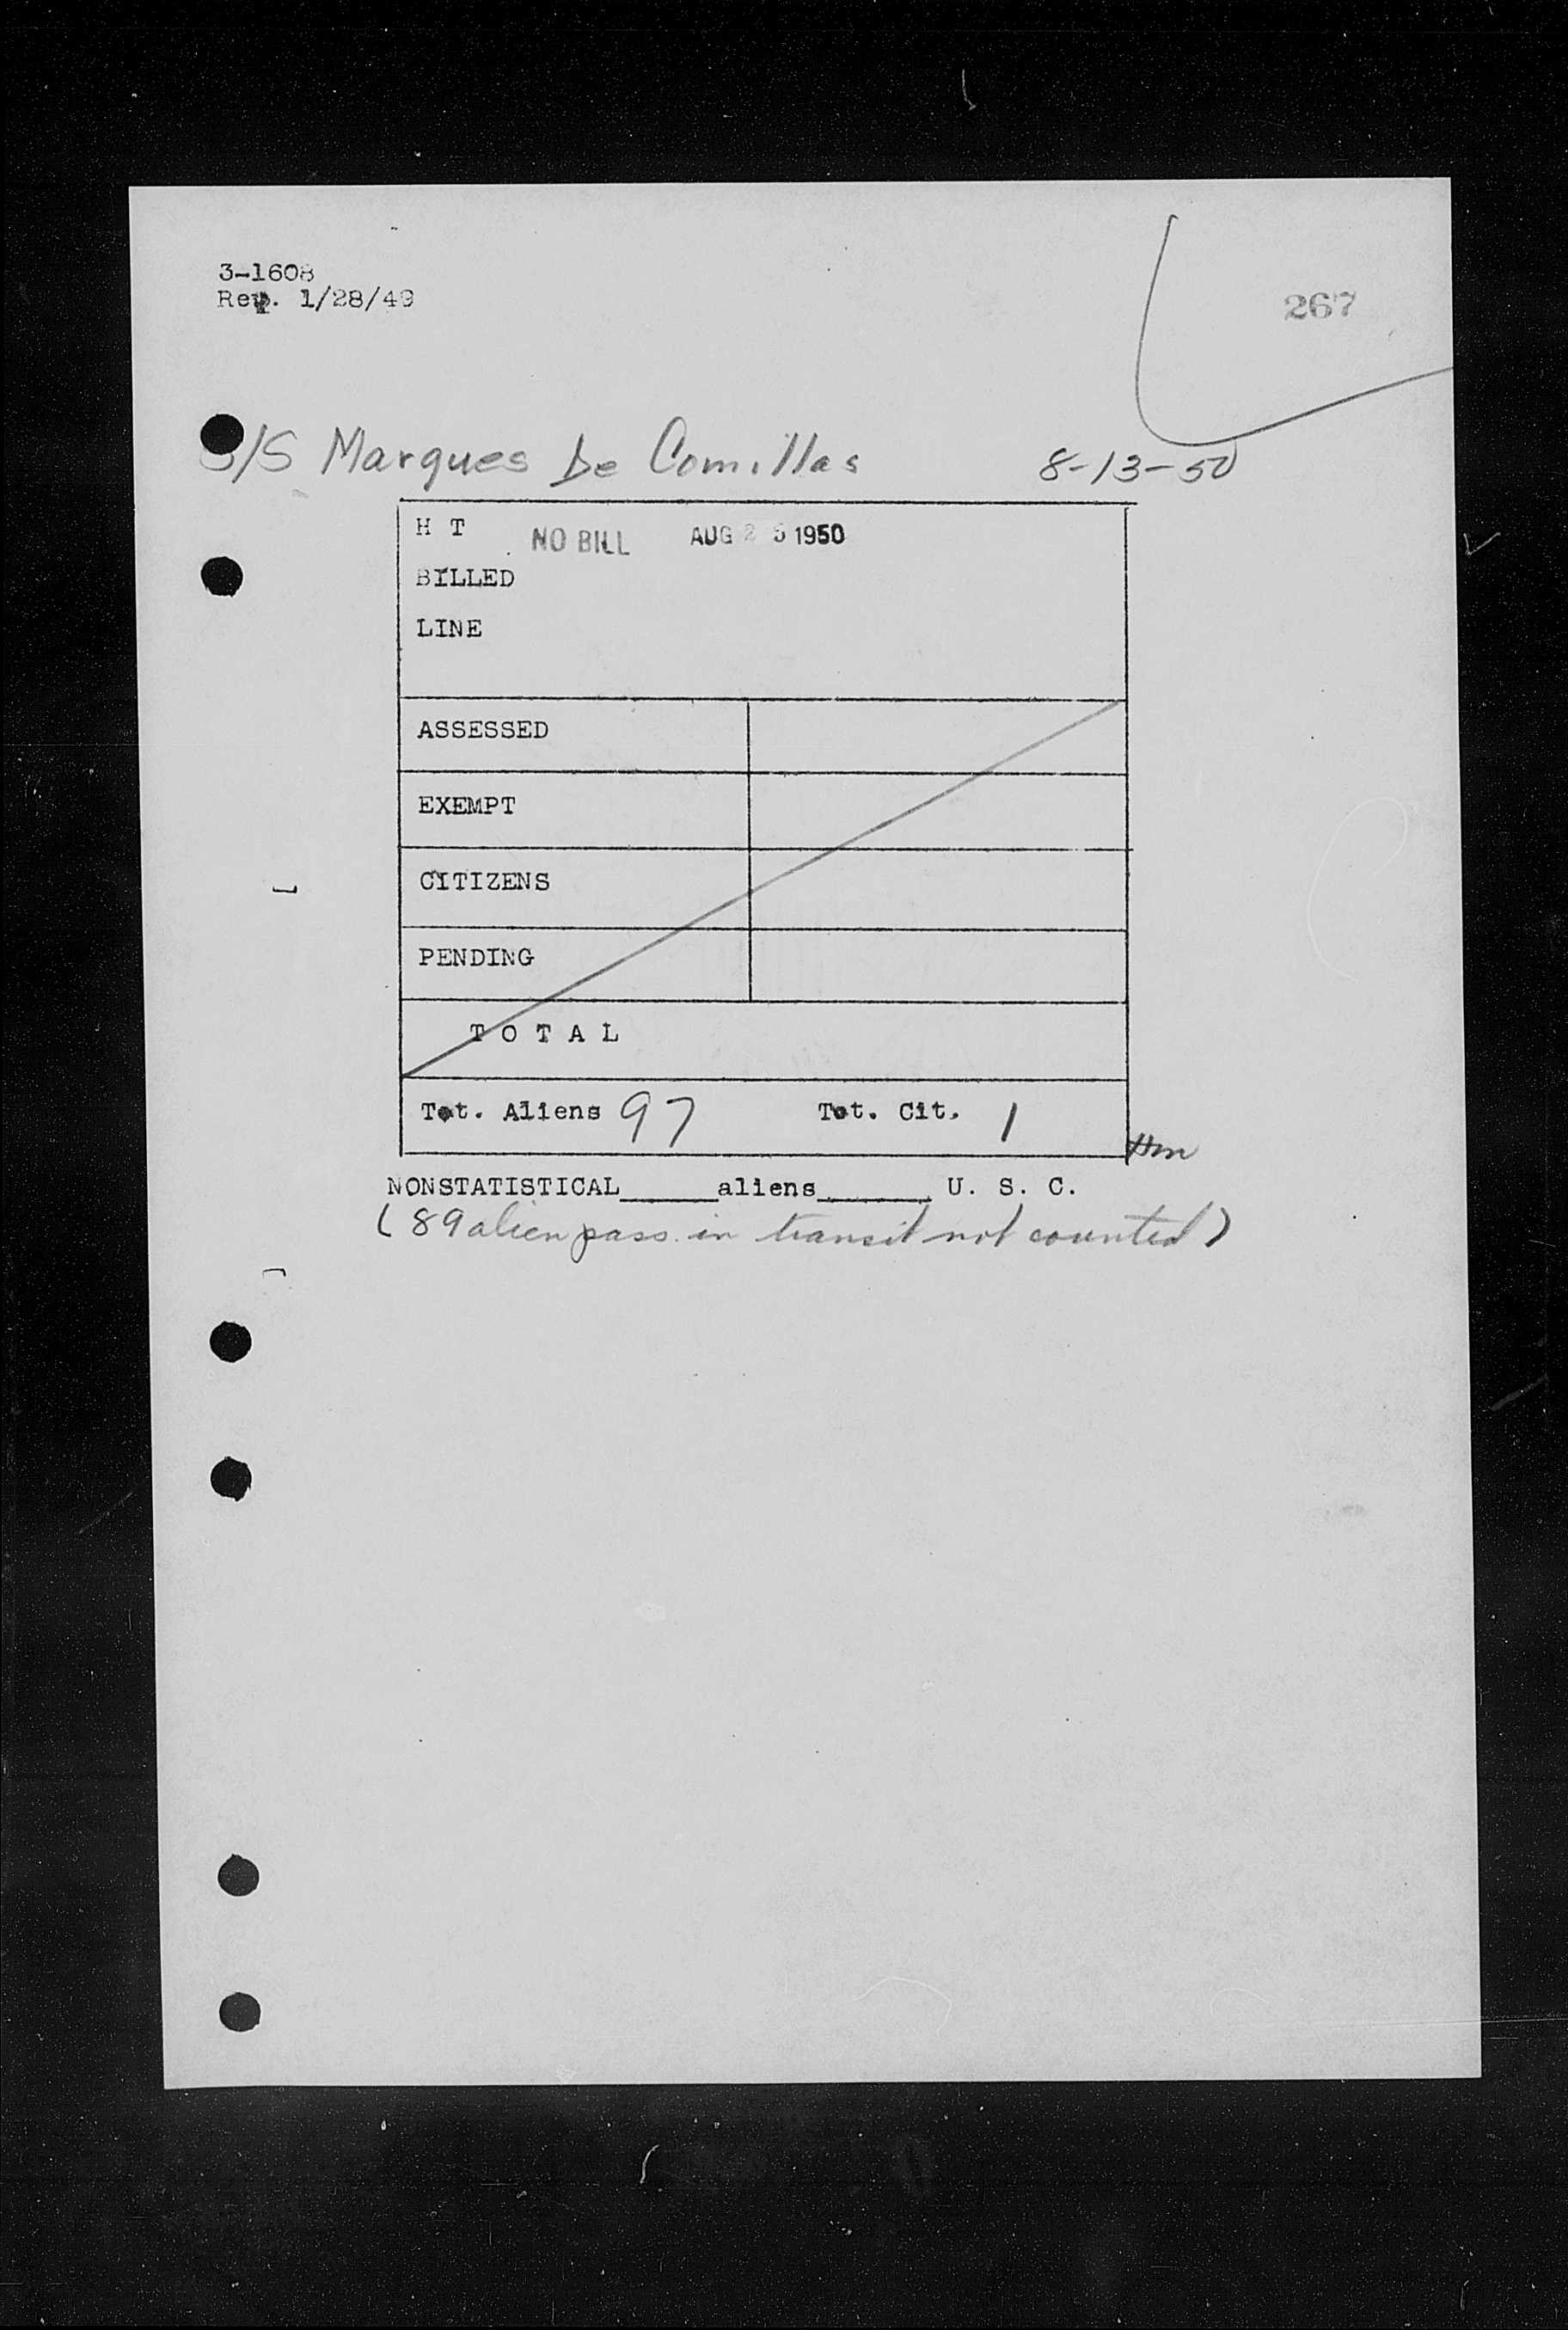 3-1608
Rev. 1/28/49
267
S/S Marques De Comillas 8-13-50
H T NO BILL AUG 2 5 1950
BILLED
LINE
ASSESSED
EXEMPT
CITIZENS
PENDING
T O T A L
Tot. Aliens 97 Tot. Cit. 1
NONSTATISTICAL______aliens_______ U. S. C.
(89 alien pass. in transit not counted)